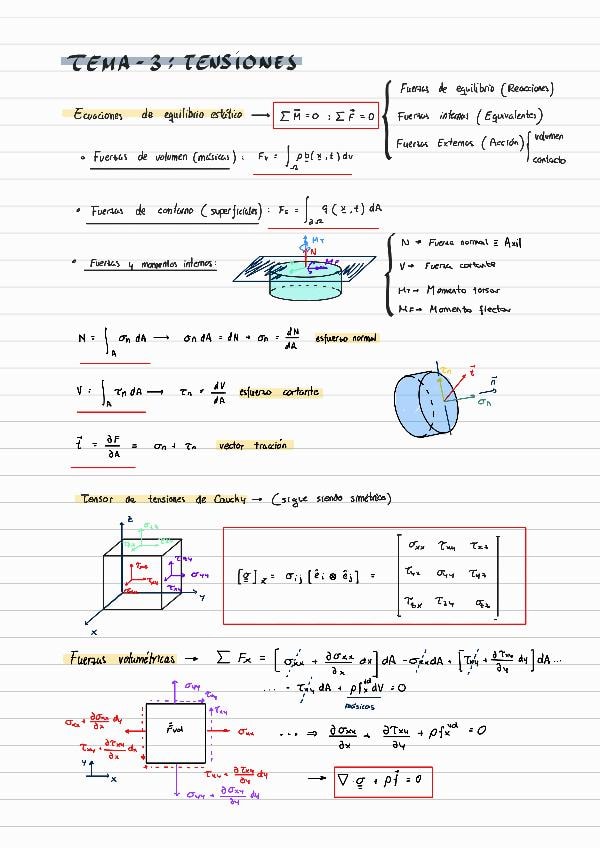 TEMA-3: TENSIONES
Ecuaciones de equilibrio estático → ΣM⃗=0 ; ΣF⃗=0
Fuerzas de equilibrio (Reacciones)
Fuerzas internas (Equivalentes)
Fuerzas Externas (Acción) { volumen
contacto
• Fuerzas de volumen (másicas): Fv = ∫Ω ρ b(x,t) dv
• Fuerzas de contorno (superficiales): Fs = ∫∂Ω q(x,t) dA
• Fuerzas y momentos internos:
MT
N
MF
N → Fuerza normal ≡ Axil
V → Fuerza cortante
MT → Momento torsor
MF → Momento flector
N = ∫A σn dA → σn dA = dN → σn = dN/dA esfuerzo normal
V = ∫A τn dA → τn = dV/dA esfuerzo cortante
t⃗ = ∂F/∂A = σn + τn vector tracción
τn t⃗ n⃗ σn
Tensor de tensiones de Cauchy → (sigue siendo simétrico)
z
y
x
[σ]x = σij [êi ⊗ êj] =
σxx τxy τxz
τyz σyy τyz
τzx τzy σz
Fuerzas volumétricas → ΣFx = [σxx + ∂σxx/∂x dx] dA - σxx dA + [τxy + ∂τxy/∂y dy] dA...
... - τxy dA + ρfx^vol dV = 0
másicos
σyy
τxy
σxx + ∂σxx/∂x dy
τxy + ∂τxy/∂x dx
F⃗vol
σxx
τxy
τxy + ∂τxy/∂y dy
σyy + ∂σyy/∂y dy
y
x
... ⇒ ∂σxx/∂x + ∂τxy/∂y + ρfx^vol = 0
→ ∇·σ + ρf⃗ = 0